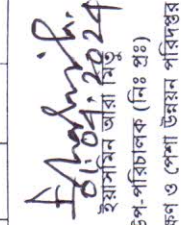 01.04.2024
ইয়াসমিন আরা মিতু
উপ-পরিচালক (নিঃ প্রঃ)
ও পেশা উন্নয়ন পরিদপ্তর